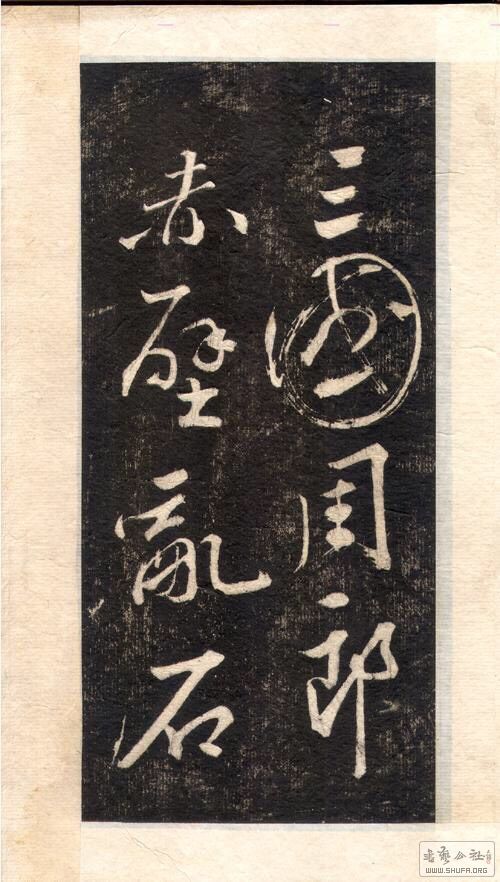 三國周郎
赤壁亂石
書藝公社
WWW.SHUFA.ORG